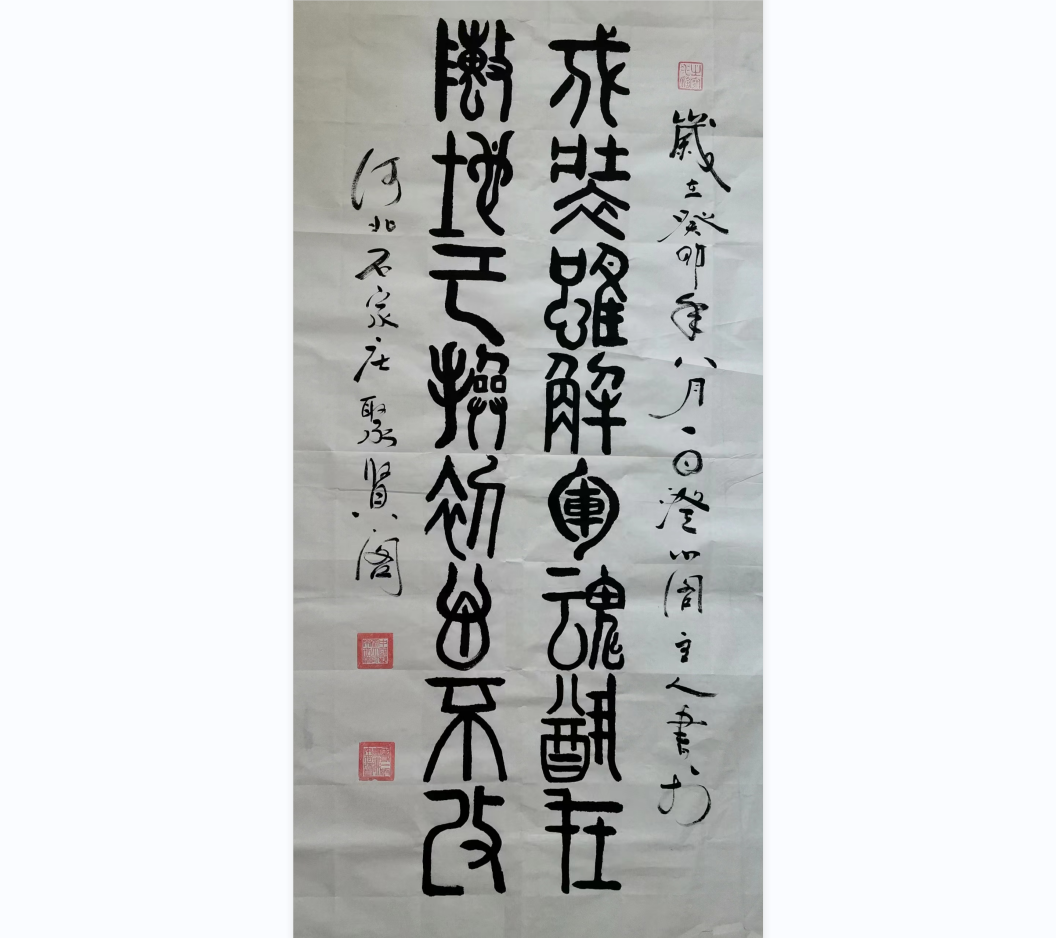 歲在癸卯年八月一日澄心阁主人書於
戎裝雖解軍魂猶在
陣地已換初心不改
河北石家庄聚賢阁